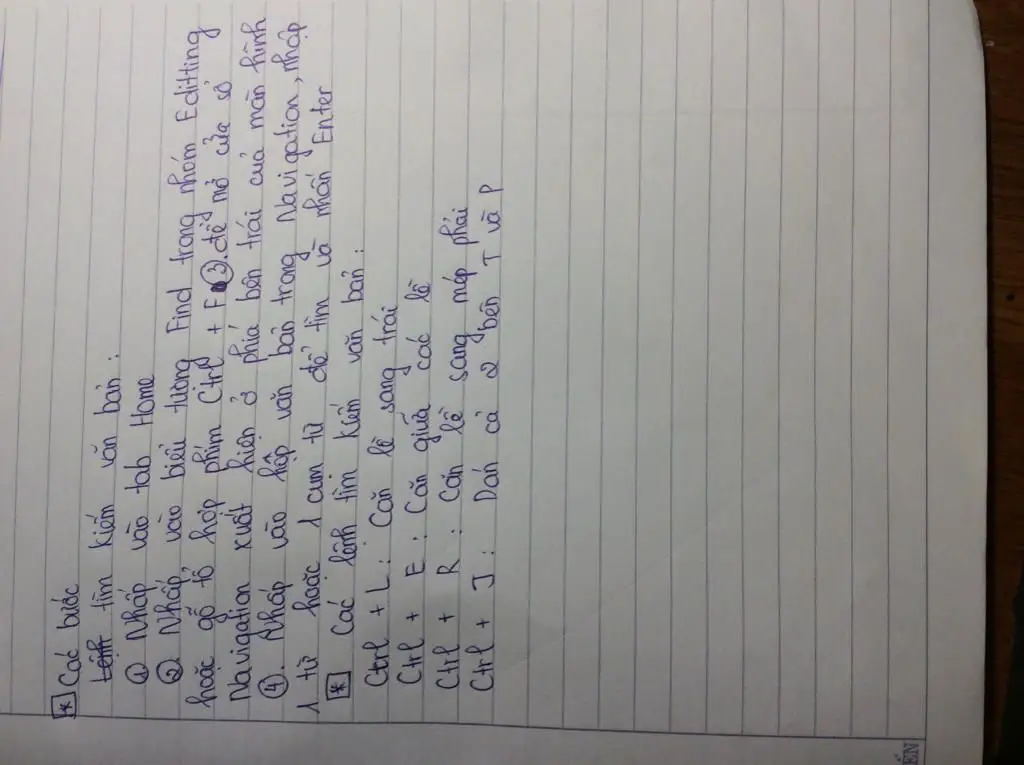 * Các bước
Lệnh tìm kiếm văn bản :
① Nhấp vào tab Home
② Nhấp vào biểu tượng Find trong nhóm Editting
hoặc gõ tổ hợp phím Ctrl + F ③. để mở cửa sổ
Navigation xuất hiện ở phía bên trái của màn hình
④. Nhấp vào hộp văn bản trong Navigation, nhập
1 từ hoặc 1 cụm từ để tìm và nhấn Enter
* Các lệnh tìm kiếm văn bản :
Ctrl + L : Căn lề sang trái
Ctrl + E : Căn giữa các lề
Ctrl + R : Căn lề sang mép phải
Ctrl + J : Dán cả 2 bên T và P
ỀN